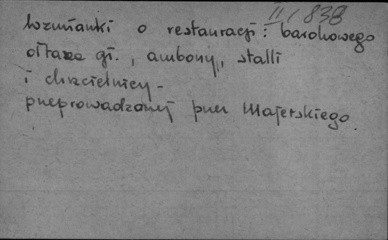 II/838
Wzmianki o restauracji: barokowego
ołtarza gł., ambony, stalli
i chrzcielnicy -
przeprowadzonej przez Majerskiego